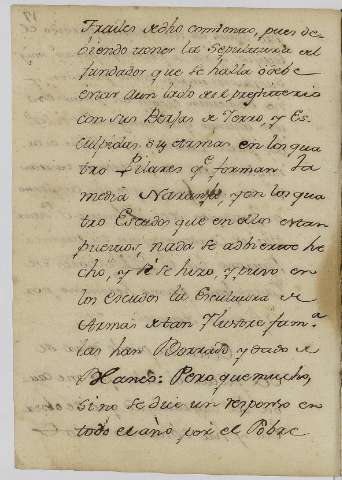 Frailes de dho combento, pues de-
viendo tener la Sepultura el
fundador que se halla ò debe
estar à un lado del presviterio
con sus Berjas de Yerro, y Es-
culpidas sus Armas en los qua
tro Pilares qe. forman la
media Naranja, y en los qua
tro Escudos que en ellos estan
puestos, nada de adbierte he
cho, y si se hizo, y puso en
los Escudos la Escultura de
Armas de tan Ylustre fama.
las han Borrado y dado de
Blanco: Pero que mucho,
si no se dice un responso en
todo el año por el Pobre